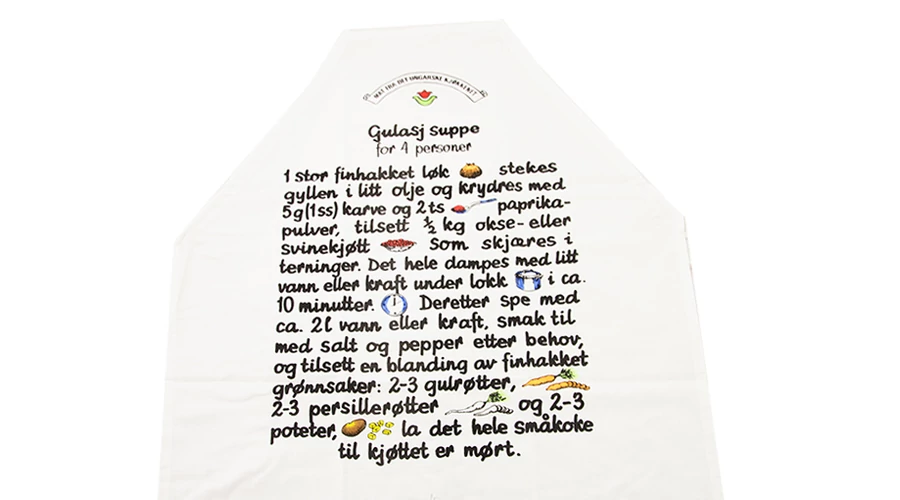 MAT FRA DET UNGARSKE KJØKKENET
Gulasj suppe
for 4 personer
1 stor finhakket løk stekes
gyllen i litt olje og krydres med
5g(1ss) karve og 2ts paprika-
pulver, tilsett ½ kg okse- eller
svinekjøtt som skjæres i
terninger. Det hele dampes med litt
vann eller kraft under lokk i ca.
10 minutter. Deretter spe med
ca. 2l vann eller kraft, smak til
med salt og pepper etter behov,
og tilsett en blanding av finhakket
grønnsaker: 2-3 gulrøtter,
2-3 persillerøtter og 2-3
poteter, la det hele småkoke
til kjøttet er mørt.